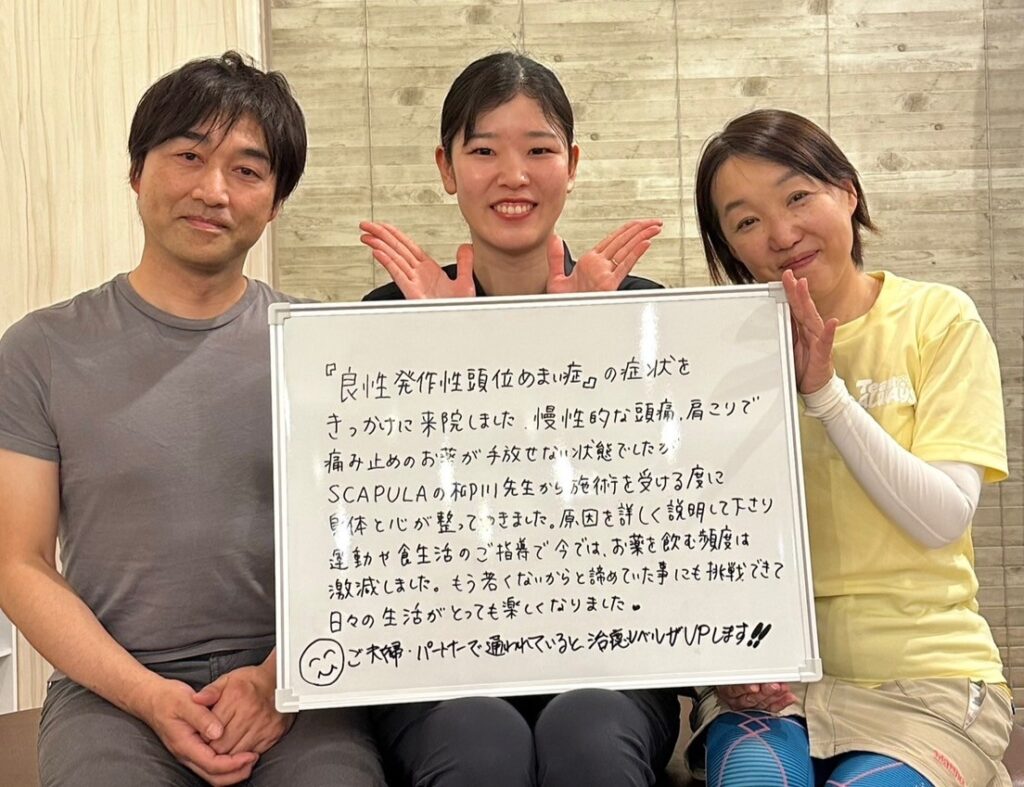 『良性発作性頭位めまい症』の症状を
きっかけに来院しました。慢性的な頭痛、肩こりで
痛み止めのお薬が手放せない状態でしたが
SCAPULAの柳川先生から施術を受ける度に
身体と心が整ってきました。原因を詳しく説明して下さり
運動や食生活のご指導で今では、お薬を飲む頻度は
激減しました。もう若くないからと諦めていた事にも挑戦できて
日々の生活がとっても楽しくなりました
ご夫婦・パートナーで通われていると治癒レベルがUPします!!